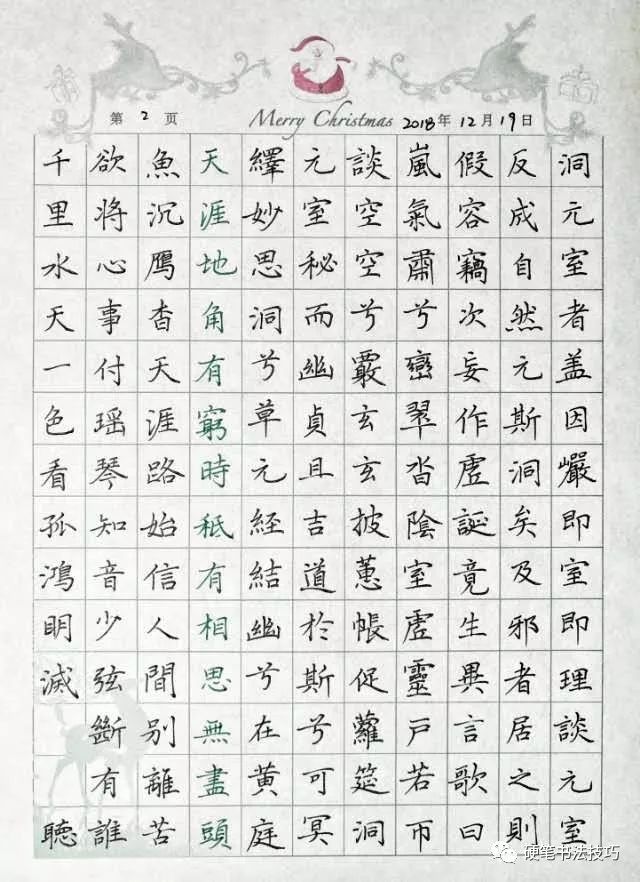 第 2 页
Merry Christmas 2018年12月19日
洞元室者盖因巗即室即理談元室
反成自然元斯洞矣及邪者居之則
假容竊次妄作虛誕竟生異言歌曰
嵐氣肅兮巒翠沓陰室虛靈戶若帀
談空空兮覈玄玄披蕙帳促蘿筵洞
元室秘而幽貞且吉道於斯兮可冥
繹妙思洞兮草元經結幽兮在黄庭
天涯地角有窮時秪有相思無盡頭
魚沉鴈杳天涯路始信人間別離苦
欲將心事付瑶琴知音少弦斷有誰
千里水天一色看孤鴻明滅 聽
硬笔书法技巧